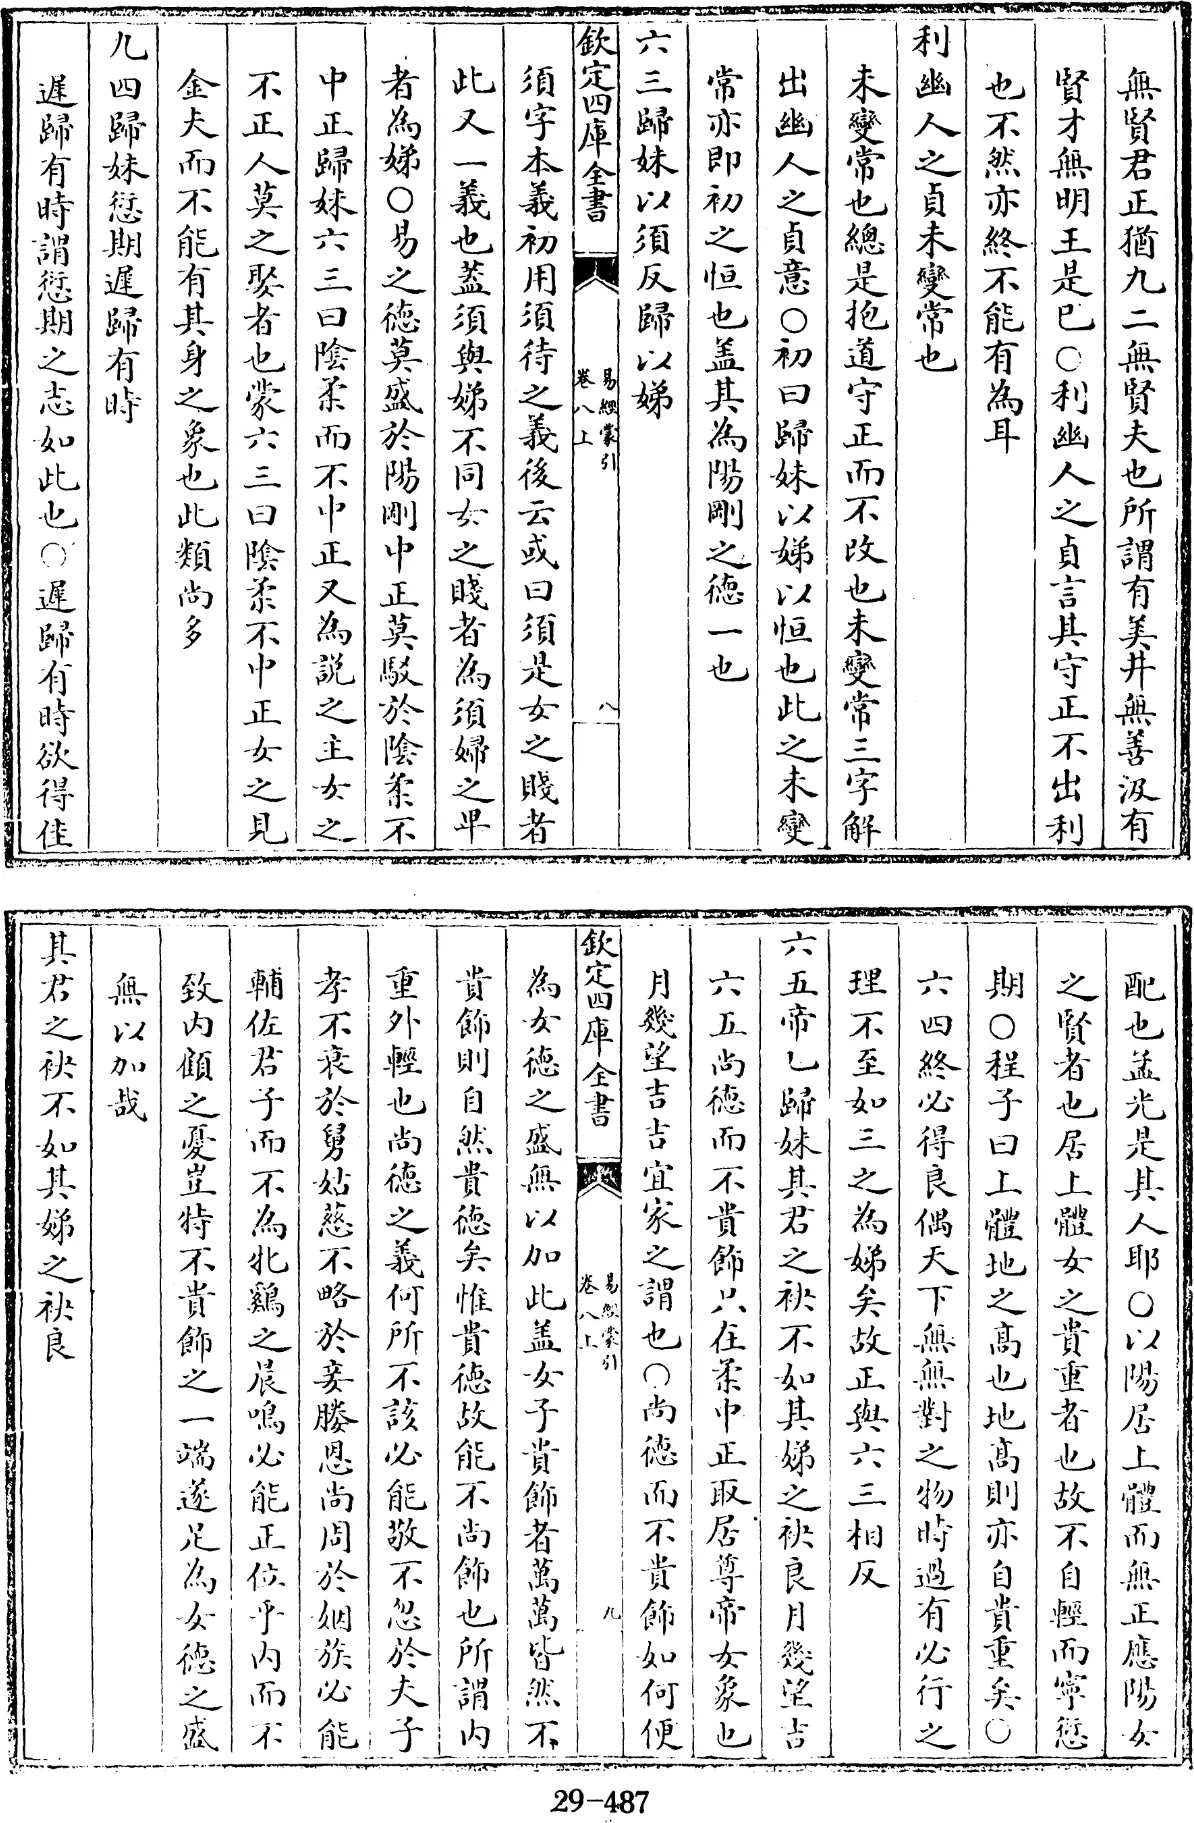 無賢君正猶九二無賢夫也所謂有美井無善汲有
賢才無明王是已○利幽人之貞言其守正不出利
也不然亦終不能有為耳
利幽人之貞未變常也
未變常也總是抱道守正而不改也未變常三字解
出幽人之貞意○初曰歸妹以娣以恒也此之未變
常亦即初之恒也蓋其為陽剛之德一也
六三歸妹以須反歸以娣
欽定四庫全書
易經蒙引
卷八上
八
須字本義初用須待之義後云或曰須是女之賤者
此又一義也蓋須與娣不同女之賤者為須婦之卑
者為娣○易之德莫盛於陽剛中正莫駁於陰柔不
中正歸妹六三曰陰柔而不中正又為説之主女之
不正人莫之娶者也蒙六三曰陰柔不中正女之見
金夫而不能有其身之象也此類尚多
九四歸妹愆期遲歸有時
遲歸有時謂愆期之志如此也○遲歸有時欲得佳
配也孟光是其人耶○以陽居上體而無正應陽女
之賢者也居上體女之貴重者也故不自輕而寧愆
期○程子曰上體地之高也地高則亦自貴重矣○
六四終必得良偶天下無無對之物時過有必行之
理不至如三之為娣矣故正與六三相反
六五帝乙歸妹其君之袂不如其娣之袂良月幾望吉
六五尚德而不貴飾只在柔中正取居尊帝女象也
月幾望吉吉宜家之謂也○尚德而不貴飾如何便
欽定四庫全書
易經蒙引
卷八上
九
為女德之盛無以加此蓋女子貴飾者萬萬皆然不
貴飾則自然貴德矣惟貴德故能不尚飾也所謂内
重外輕也尚德之義何所不該必能敬不忽於夫子
孝不衰於舅姑慈不略於妾媵恩尚周於姻族必能
輔佐君子而不為牝鷄之晨鳴必能正位乎内而不
致内顧之憂豈特不貴飾之一端遂足為女德之盛
無以加哉
其君之袂不如其娣之袂良
29-487